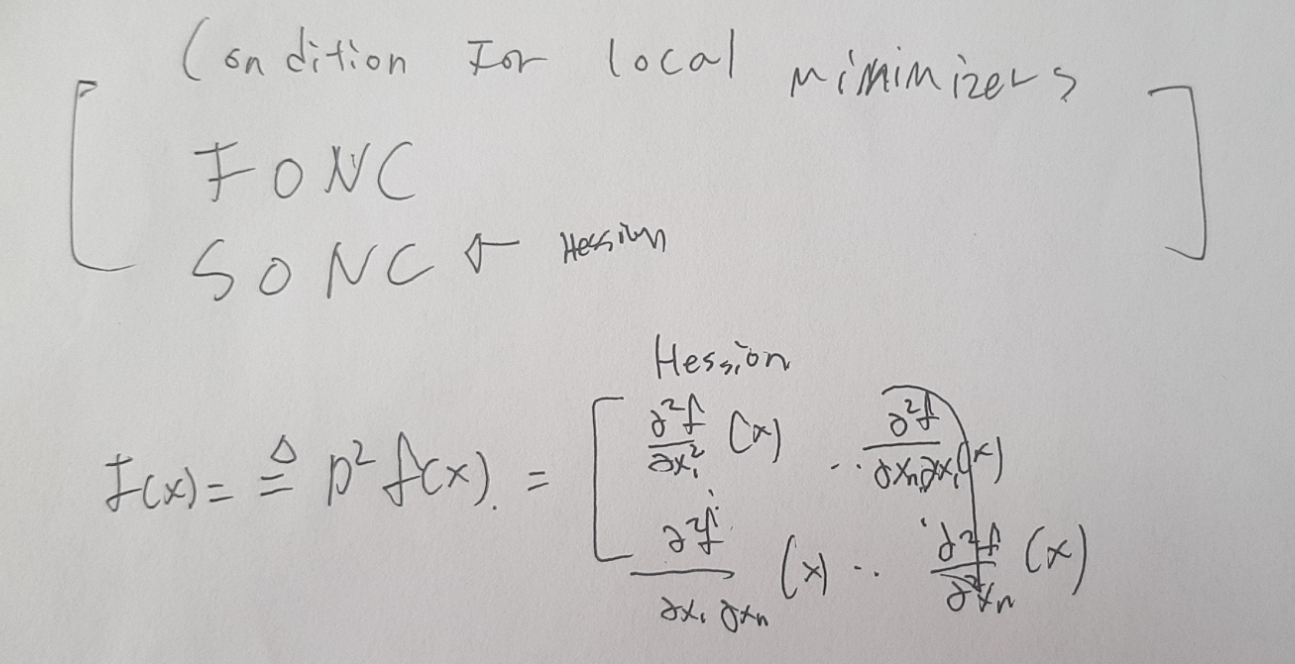 Condition For local minimizers
FONC
SONC ← Hession
Hession
F(x) = ≜ D²f(x). = [ ∂²f/∂x₁² (x) ·· ∂²f/∂xₙ∂x₁ (x)
∂²f/∂x₁∂xₙ (x) ·· ∂²f/∂²xₙ (x) ]